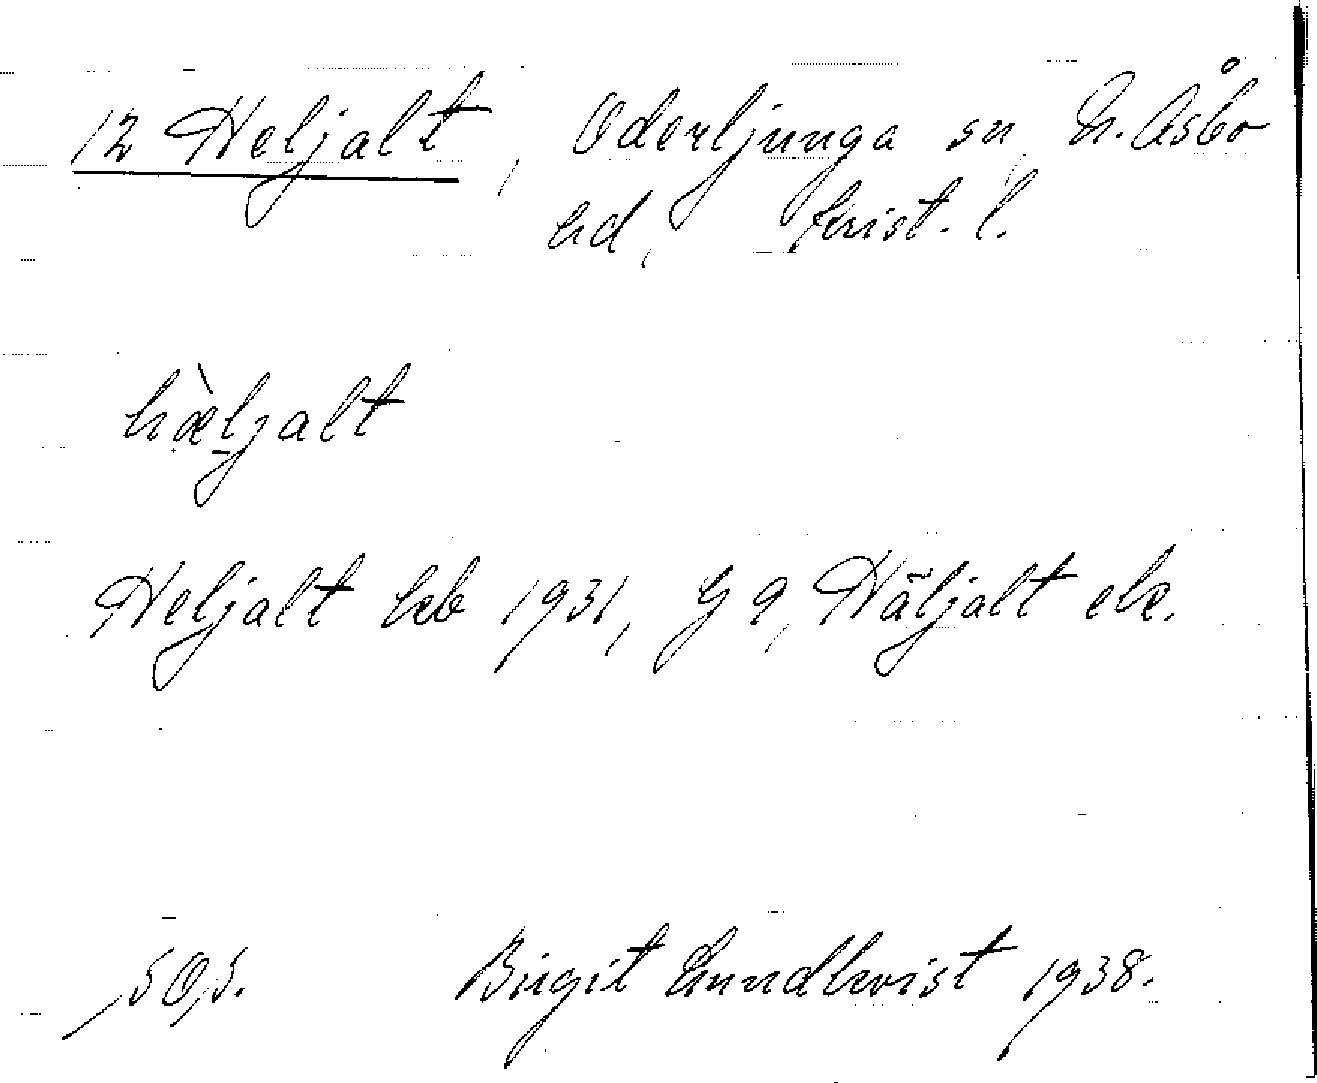 12 Heljalt, Oderljunga sn, N. Åsbo
hd, Krist. l.
hæ̀ljalt
Heljalt kb 1931, G 9, Häljalt ek.
SOS. Birgit Lundkvist 1938.